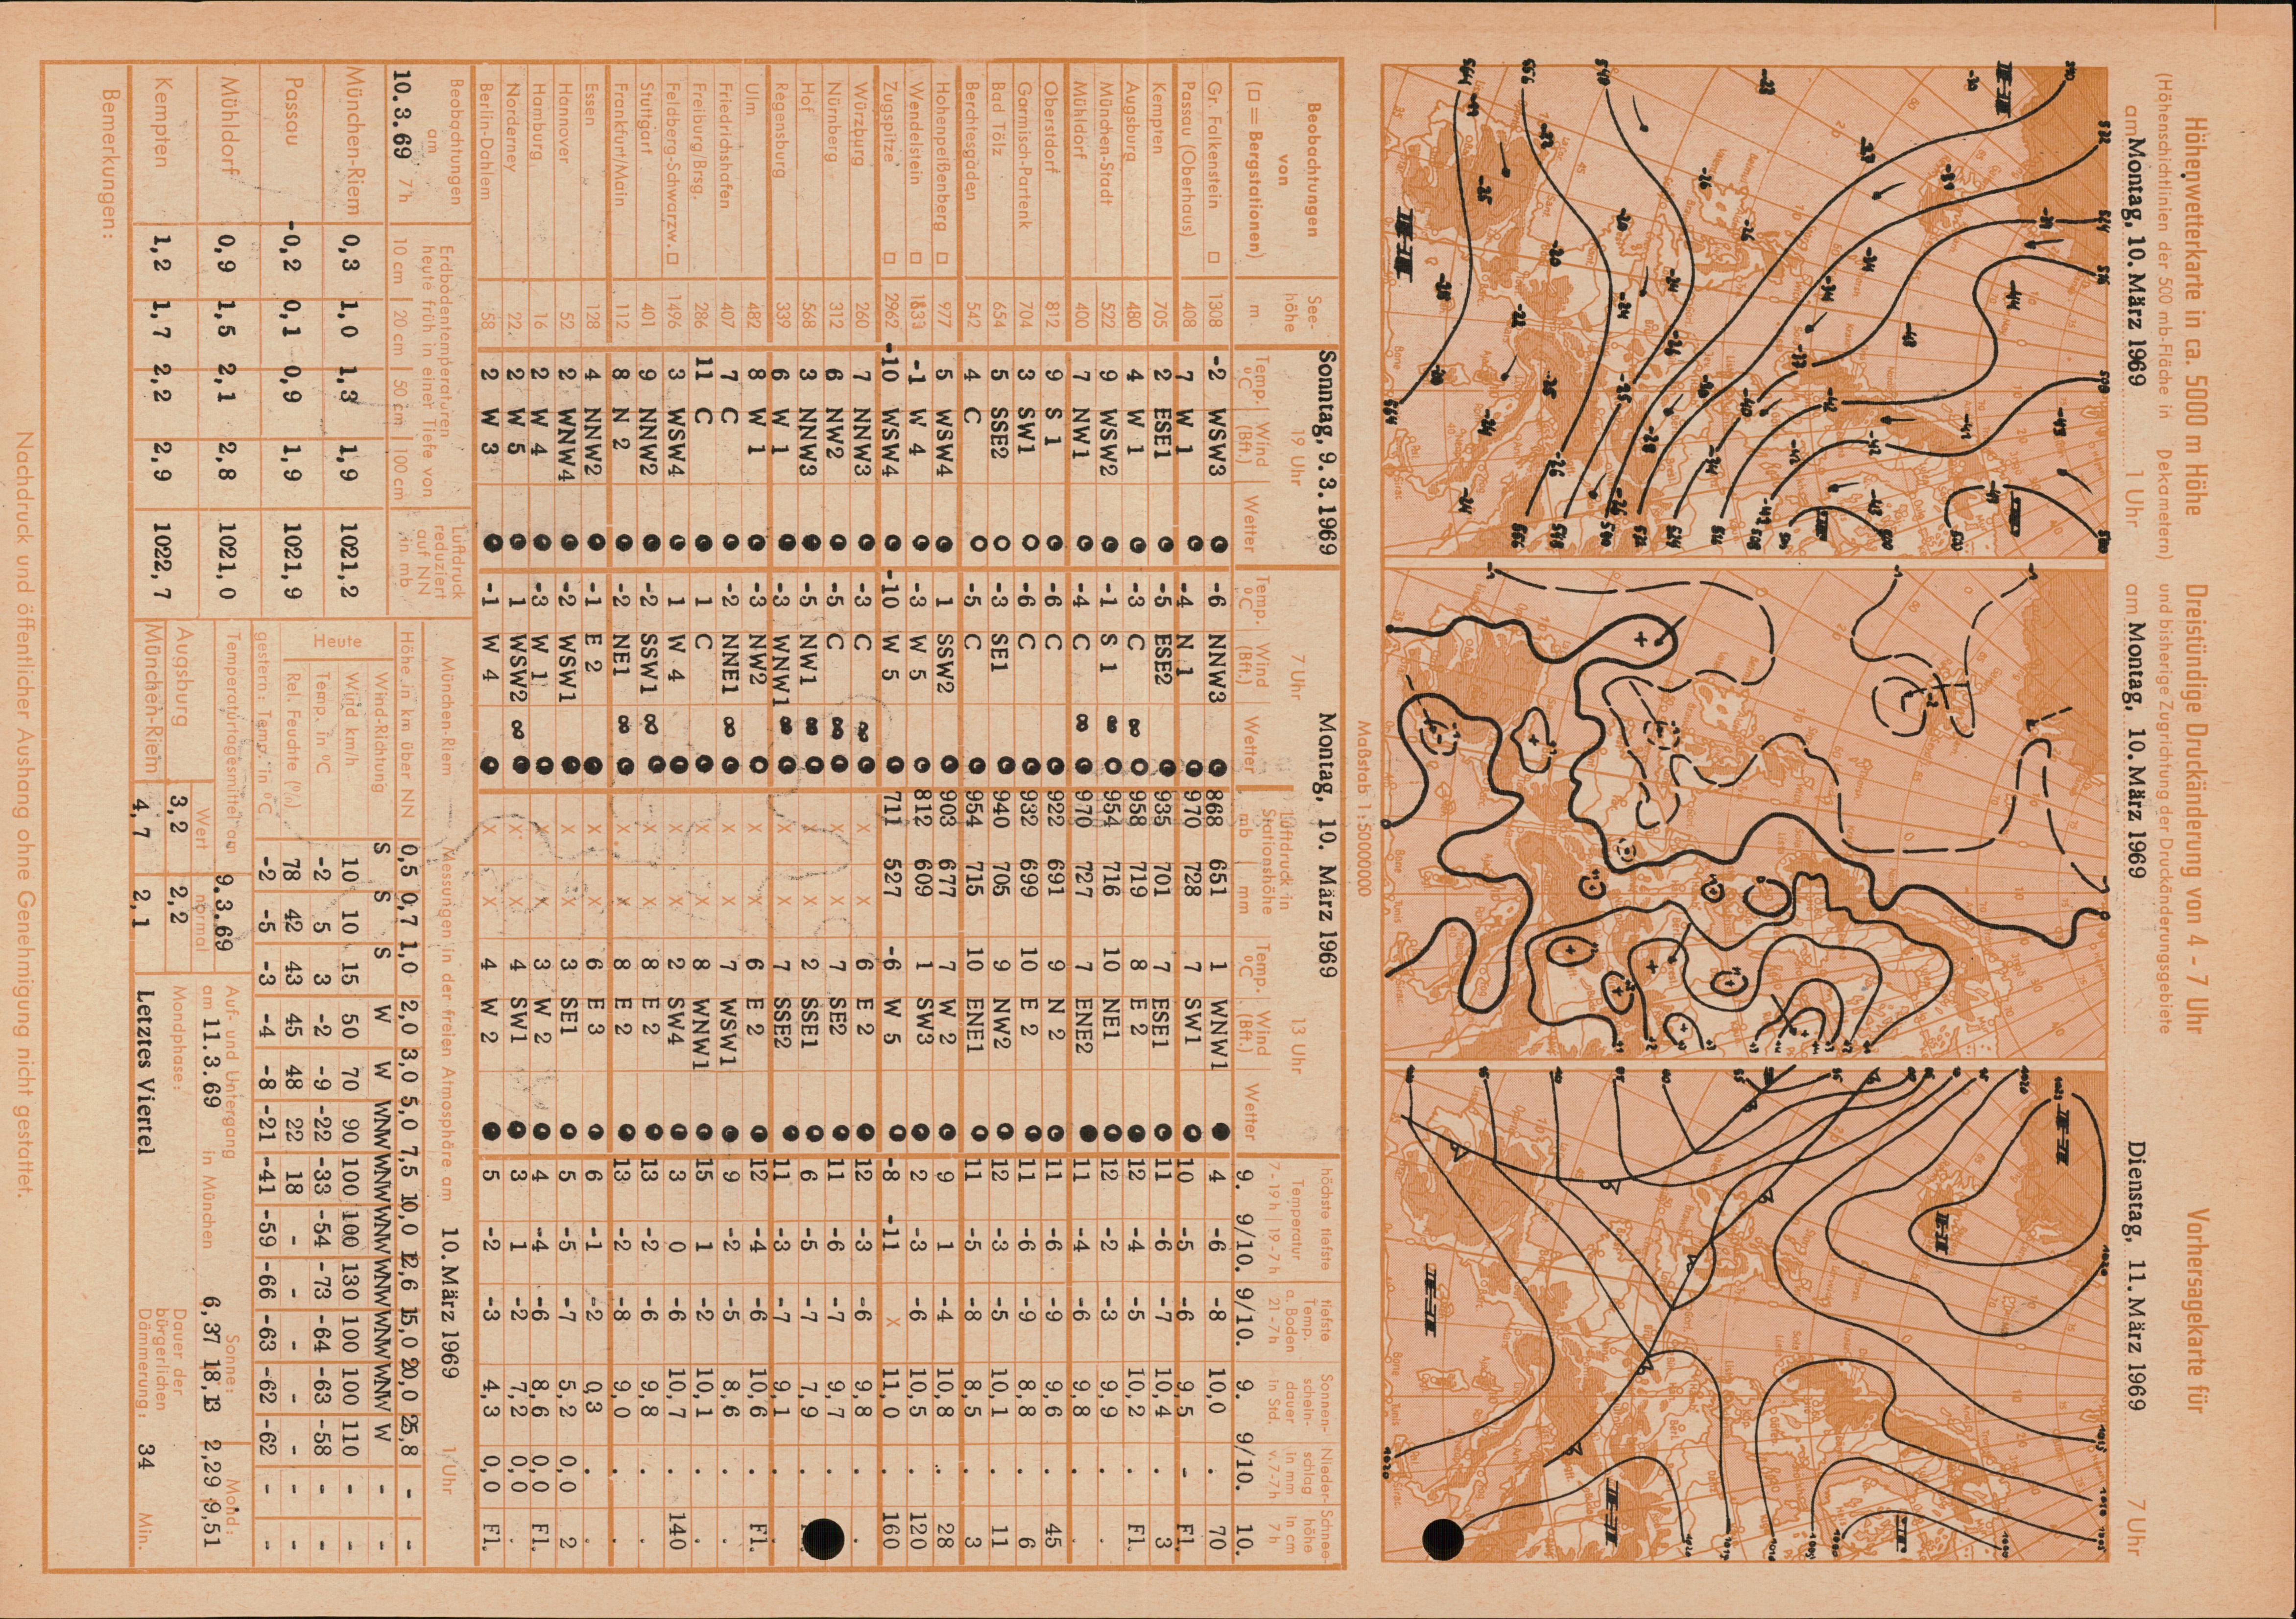 Höhenwetterkarte in ca. 5000 m Höhe
(Höhenschichtlinien der 500 mb-Fläche in Dekametern)
am Montag, 10. März 1969 1 Uhr
Dreistündige Druckänderung von 4 - 7 Uhr
und bisherige Zugrichtung der Druckänderungsgebiete
am Montag, 10. März 1969
Vorhersagekarte für
Dienstag, 11. März 1969 7 Uhr
Maßstab 1:50000000
Beobachtungen von (□ = Bergstationen)
See-höhe m
Sonntag, 9.3.1969
19 Uhr
Montag, 10. März 1969
7 Uhr
13 Uhr
Temp. °C Wind (Bft.) Wetter
Temp. °C Wind (Bft.) Wetter
Luftdruck in Stationshöhe mb mm
Temp. °C Wind (Bft.) Wetter
höchste tiefste Temperatur 7-19h 19-7h
tiefste Temp. a. Boden 21-7h
Sonnen-schein-dauer in Std.
Nieder-schlag in mm v. 7-7h
Schnee-höhe in cm 7h
9. 9/10. 9/10. 9. 9/10. 10.
Gr. Falkenstein □ 1308 -2 WSW3 -6 NNW3 868 651 1 WNW1 4 -6 -8 10,0 . 70
Passau (Oberhaus) 408 7 W 1 -4 N 1 970 728 7 SW1 10 -5 -6 9,5 - Fl.
Kempten 705 2 ESE1 -5 ESE2 935 701 7 ESE1 11 -6 -7 10,4 . 3
Augsburg 480 4 W 1 -3 C ∞ 958 719 8 E 2 12 -4 -5 10,2 . Fl.
München-Stadt 522 9 WSW2 -1 S 1 ∞ 954 716 10 NE1 12 -2 -3 9,9 . .
Mühldorf 400 7 NW1 -4 C ∞ 970 727 7 ENE2 11 -4 -6 9,8 . .
Oberstdorf 812 9 S 1 -6 C 922 691 9 N 2 11 -6 -9 9,6 . 45
Garmisch-Partenk 704 3 SW1 -6 C 932 699 10 E 2 11 -6 -9 8,8 . 6
Bad Tölz 654 5 SSE2 -3 SE1 940 705 9 NW2 12 -3 -5 10,1 . 11
Berchtesgaden 542 4 C -5 C 954 715 10 ENE1 11 -5 -8 8,5 . 3
Hohenpeißenberg □ 977 5 WSW4 1 SSW2 903 677 7 W 2 9 1 -4 10,8 . 28
Wendelstein □ 1833 -1 W 4 -3 W 5 812 609 1 SW3 2 -3 -6 10,5 . 120
Zugspitze □ 2962 -10 WSW4 -10 W 5 711 527 -6 W 5 -8 -11 X 11,0 . 160
Würzburg 260 7 NNW3 -3 C ∞ X X 6 E 2 12 -3 -6 9,8 . .
Nürnberg 312 6 NW2 -5 C ∞ X X 7 SE2 11 -6 -7 9,7 .
Hof 568 3 NNW3 -5 NW1 ∞ X X 2 SSE1 6 -5 -7 7,9 .
Regensburg 339 6 W 1 -3 WNW1 ∞ X X 7 SSE2 11 -3 -7 9,1 . .
Ulm 482 8 W 1 -3 NW2 X X 6 E 2 12 -4 -6 10,6 . Fl.
Friedrichshafen 407 7 C -2 NNE1 ∞ X X 7 WSW1 9 -2 -5 8,6 . .
Freiburg/Brsg. 286 11 C 1 C X X 8 WNW1 15 1 -2 10,1 . .
Feldberg-Schwarzw. □ 1496 3 WSW4 1 W 4 X X 2 SW4 3 0 -6 10,7 . 140
Stuttgart 401 9 NNW2 -2 SSW1 ∞ X X 8 E 2 13 -2 -6 9,8 . .
Frankfurt/Main 112 8 N 2 -2 NE1 ∞ X X 8 E 2 13 -2 -8 9,0 . .
Essen 128 4 NNW2 -1 E 2 X X 6 E 3 6 -1 -2 0,3 . .
Hannover 52 2 WNW4 -2 WSW1 X X 3 SE1 5 -5 -7 5,2 0,0 2
Hamburg 16 2 W 4 -3 W 1 X X 3 W 2 4 -4 -6 8,6 0,0 Fl.
Norderney 22. 2 W 5 1 WSW2 ∞ X X 4 SW1 3 1 -2 7,2 0,0 .
Berlin-Dahlem 58 2 W 3 -1 W 4 X X 4 W 2 5 -2 -3 4,3 0,0 Fl.
Beobachtungen am 10.3.69 7h
Erdbodentemperaturen heute früh in einer Tiefe von
10 cm 20 cm 50 cm 100 cm
Luftdruck reduziert auf NN in mb
München-Riem 0,3 1,0 1,3 1,9 1021,2
Passau -0,2 0,1 0,9 1,9 1021,9
Mühldorf 0,9 1,5 2,1 2,8 1021,0
Kempten 1,2 1,7 2,2 2,9 1022,7
Bemerkungen:
München-Riem Messungen in der freien Atmosphäre am 10. März 1969 1 Uhr
Höhe in km über NN 0,5 0,7 1,0 2,0 3,0 5,0 7,5 10,0 12,6 15,0 20,0 25,8 - -
Heute
Wind-Richtung S S S W W WNW WNW WNW WNW WNW WNW W - -
Wind km/h 10 10 15 50 70 90 100 100 130 100 100 110 - -
Temp. in °C -2 5 3 -2 -9 -22 -33 -54 -73 -64 -63 -58 - -
Rel. Feuchte (%) 78 42 43 45 48 22 18 - - - - - - -
gestern: Temp. in °C -2 -5 -3 -4 -8 -21 -41 -59 -66 -63 -62 -62 - -
Temperaturtagesmittel am 9.3.69
Wert normal
Augsburg 3,2 2,2
München-Riem 4,7 2,1
Auf- und Untergang am 11.3.69 in München
Sonne: 6,37 18,13
Mond: 2,29 9,51
Mondphase: Letztes Viertel
Dauer der bürgerlichen Dämmerung: 34 Min.
Nachdruck und öffentlicher Aushang ohne Genehmigung nicht gestattet.